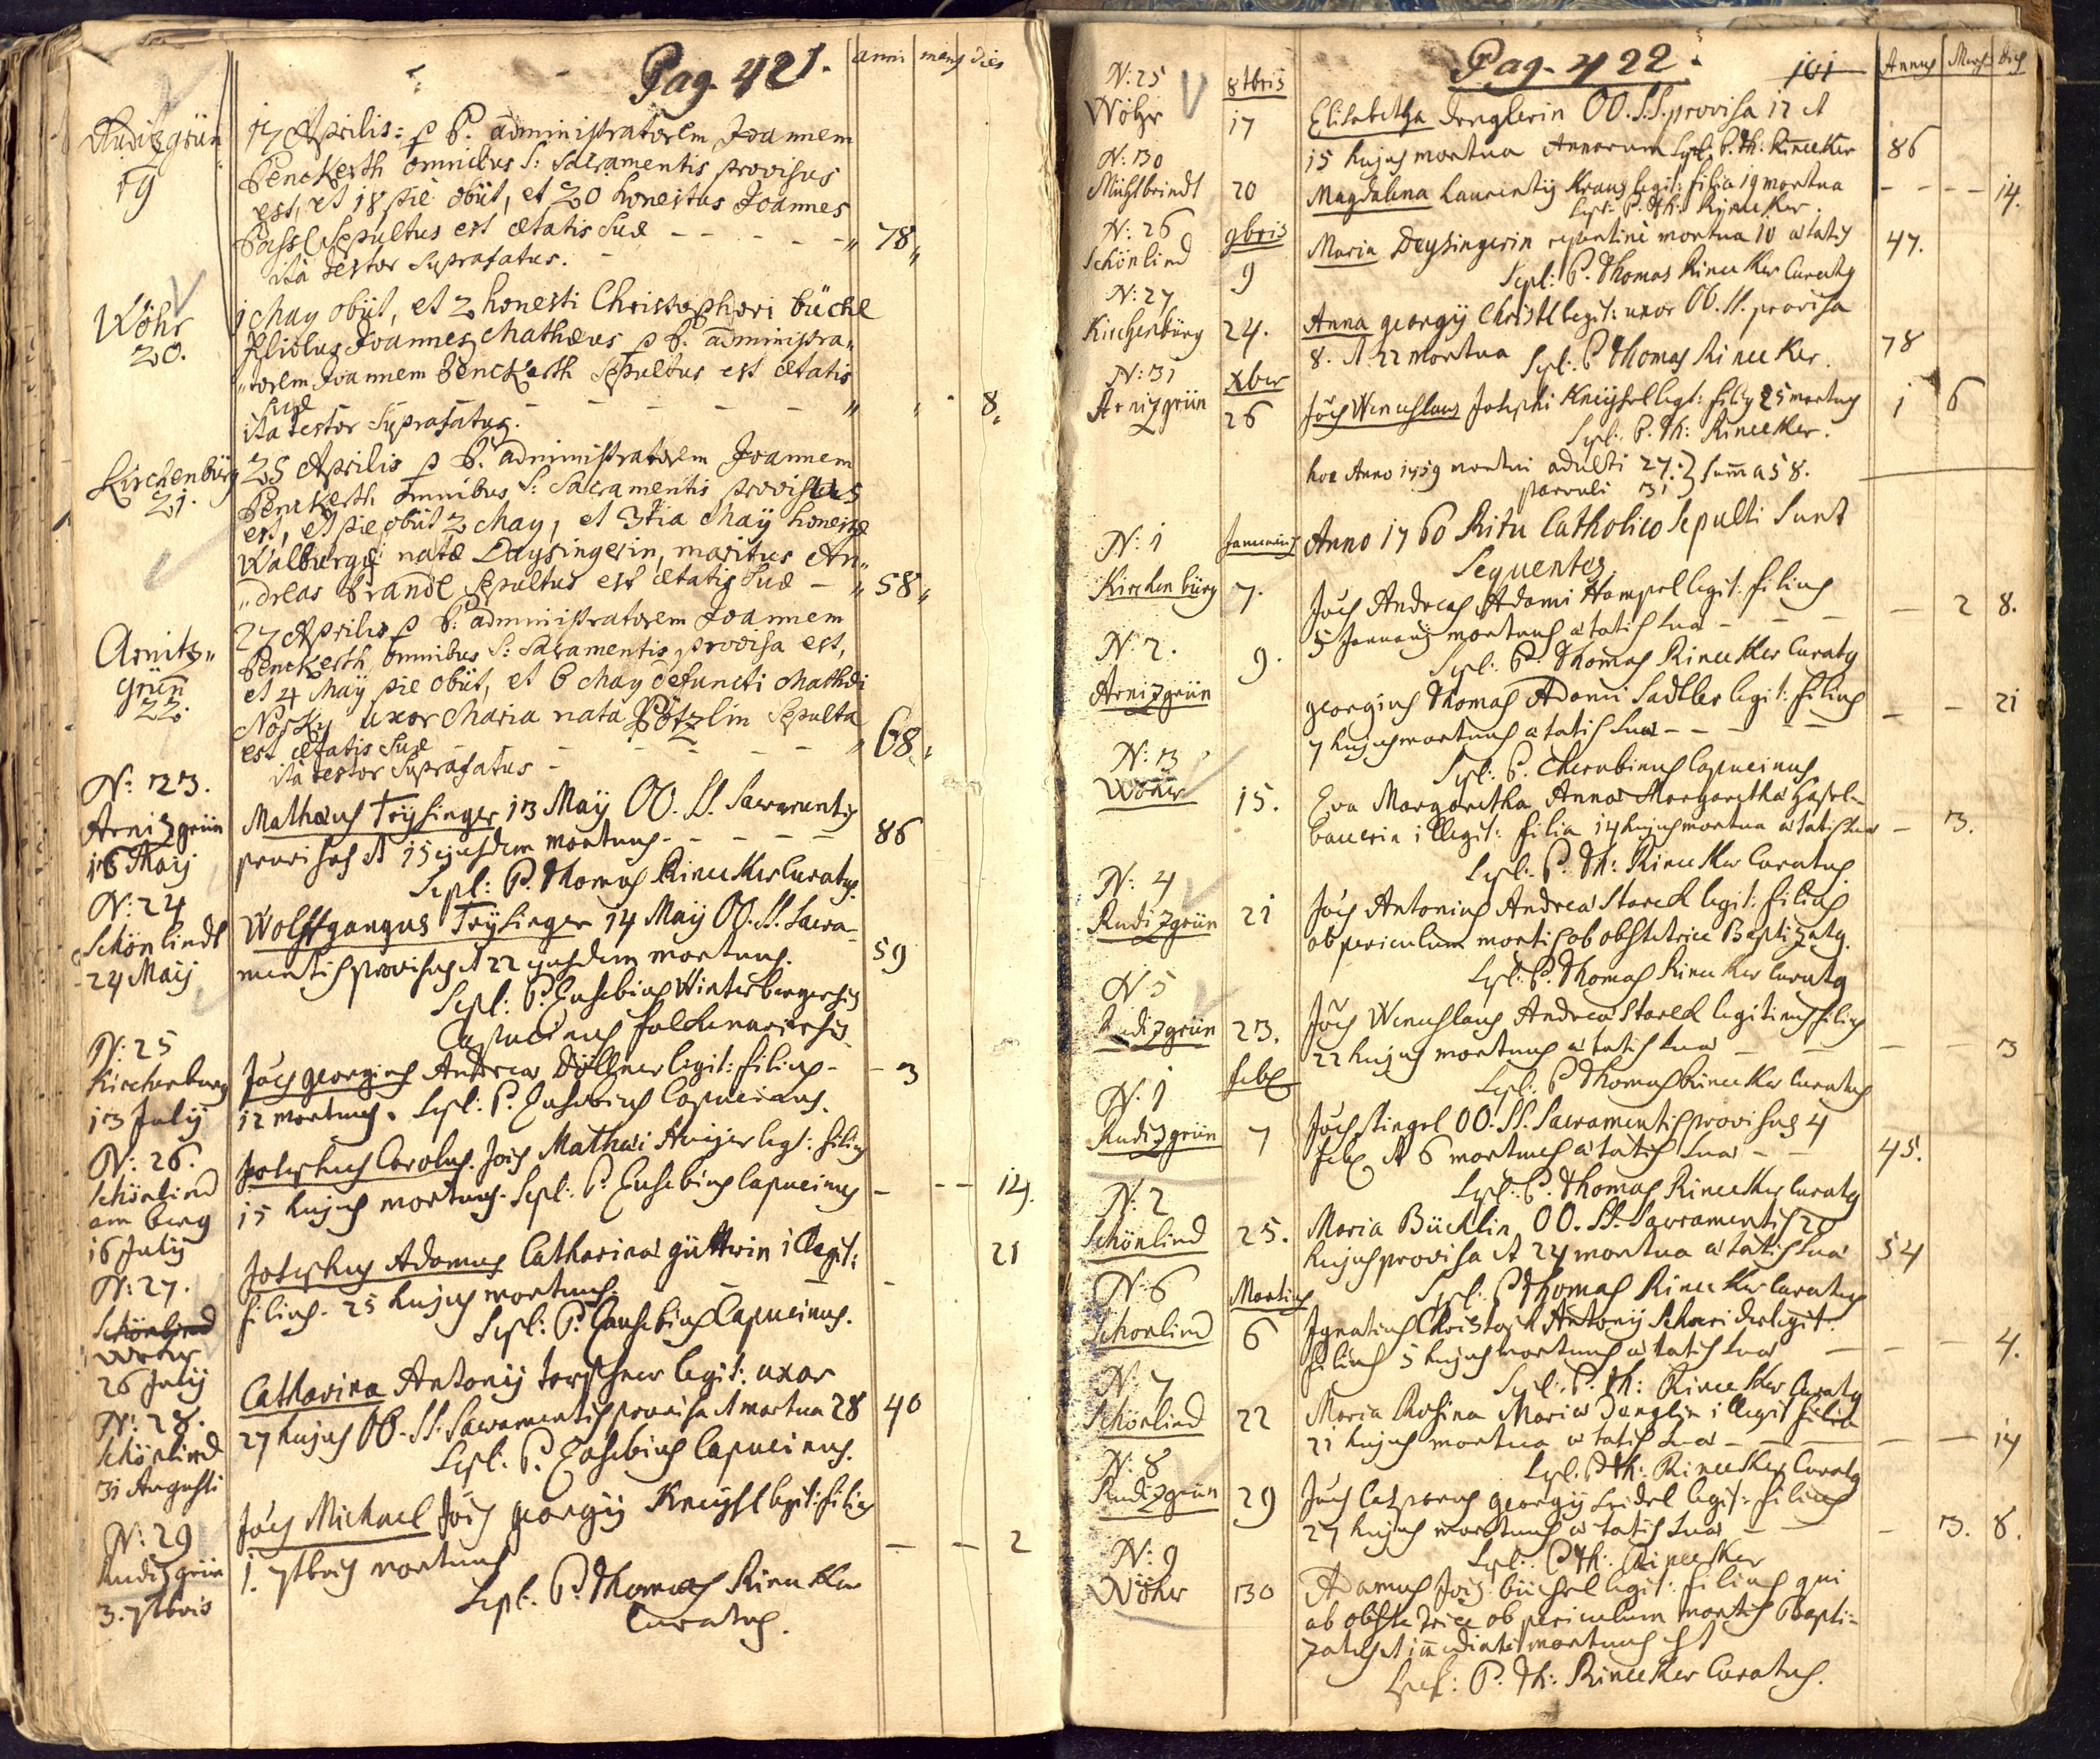 Pag. 421. anni mens dies
Rudizgrün 17 Aprilis: p P. administratorem Joannem
19 Penckerth omnibus S: Sacramentis provisus
est, et 18 pie obiit, et 20 honestus Joannes
sepultus est ætatis suæ - - - - - „ 78 „
ita testor suprafatus.
Wöhr 1 May obiit, et 2 honesti Christophori büchl
20. filiolus Joannes Mathæus p P. administra„
„torem Joannem Penckerth sepultus est ætatis
suæ - - - - - „ „ 8„
ita testor suprafatus.
Kirchenbürg 25 Aprilis p P. administratorem Joannem
21. Penckerth omnibus S: Sacramentis provisus
est, et pie obiit 2 May, et 3tia Maÿ honestæ
Walburgæ natæ Daysingerin, maritus An„
„dreas Brandl sepultus est ætatis suæ - „ 58 „
Arnitz„ 27 Aprilis p P. administratorem Joannem
grün Penckerth omnibus S: Sacramentis provisa est,
22. et 4 Maÿ pie obiit, et 6 May defuncti Mathæi
uxor Maria nata Pötzlin sepulta
est ætatis suæ - - - - - „ 68„
ita testor suprafatus -
N: 23.
Arnizgrün Mathæus Trysinger 13 Maÿ OO. SS. Sacramentis
16 Maij provisus et 15 ejusdem mortuus - - - - 86
Sepl: P. Thomas Rineker Curatus.
N: 24
Schönlindt Wolffgangus Trysinger 14 Maÿ OO. SS. Sacra-
24 Maij mentis provisus et 22 ejusdem mortuus. 59
Sepl: P. Eusebius Winterbergensis
Capucinus Falckenaviensis
N: 25
Kirchenburg Jões georgius Andreæ Döllner legit: filius - - 3
13 Julÿ 12 mortuus. Sepl: P. Eusebius Capucinus.
N: 26.
Schönlind Josephus Carolus. Jois Mathæi legt: filius
am berg 15 hujus mortuus. Sepl: P. Eusebius Capucinus - - - 14.
16 Julÿ
N: 27.
Schönlind Josephus Adamus Catharinæ güttrin illegit: 21
Wöhr filius. 25 hujus mortuus. - - -
26 Julÿ Sepl: P. Eusebius Capucinus.
N: 28.
Schönlind Catharina Antonÿ legit: uxor
31 Augusti 27 hujus OO. SS. Sacramentis provisa et mortua 28 40
Sepl: P. Eusebius Capucinus.
N: 29
Rudizgrün Jões Michael Jois georgÿ Kneÿsl legit: filius - - 2
3. 7tbris 1. 7tbris mortuus
Sepl: P. Thomas Rineker
Curatus.
Pag. 422. 101 Annus Mens dies
N: 25 8tbris
Wöhr 17 Elisabetha Denglerin OO. SS. provisa 12 et
15 hujus mortua Annorum Sepl: P. Th: Rineker 86
N: 30
Mühlbrindt 20 Magdalena Laurentÿ Kraus legit: filia 19 mortua - - - - 14.
Sepl: P. Th: Rineker.
N: 26 9bris
Schönlind 9 Maria Deysingerin repentine mortua 10 ætatis 47.
Sepl: P. Thomas Rineker Curatus
N: 27
Kirchenbürg 24. Anna georgÿ Christl legit: uxor OO. SS. provisa
8. et 22 mortua Sepl: P. Thomas Rineker. 78
N: 31 Xber
Arnizgrün 26 Jões Wenceslaus Josephi Kneÿsel legt: filius 25 mortuus 1 6
Sepl: P. Th: Rineker.
hoc Anno 1759 mortui adulti 27. } Summa 58.
parvuli 31
N: 1 Januarius Anno 1760 Ritu Catholico sepulti sunt
Sequentes.
Kirchenbürg 7. Jões Andreas Adami Hampel legit: filius
5 Januarÿ mortuus ætatis suæ - - - - 2 8.
Sepl: P. Thomas Rineker Curatus
N: 2. 9.
Arnizgrün georgius Thomas Adami Sadtler legit: filius
7 hujus mortuus ætatis suæ - - - - - 21
Sepl: P. Cherubinus Capucinus
N: 3
Wöhr 15. Eva Margaretha Annæ Margarethæ Hasel-
bauerin illegit: filia 14 hujus mortua ætatis suæ - 3.
Sepl: P. Th: Rineker Curatus.
N: 4
Rudizgrün 21 Jões Antonius Andreæ Starck legit: filius
ob periculum mortis ob obstetrice Baptizatus.
Sepl: P. Thomas Rineker Curatus
N: 5
Rudizgrün 23. Jões Wenceslaus Andreæ Starck legitimus filius
22 hujus mortuus ætatis suæ - - - - 3
Sepl: P. Thomas Rineker Curatus
N: 1 feb
Rudizgrün 7 Jões Stingel OO. SS. Sacramentis provisus 4
feb et 6 mortuus ætatis suæ - - 45.
Sepl: P. Thomas Rineker Curatus
N: 2
Schönlind 25. Maria Bücklin OO. SS. Sacramentis 20
hujus provisa et 24 mortua ætatis suæ 54
Sepl: P. Thomas Rineker Curatus
N: 6 Martius
Schönlind 6 Ignatius Christoph Antonÿ Schneider legit:
filius 5 hujus mortuus ætatis suæ - - - 4.
Sepl: P. Th: Rineker Curatus
N: 7
Schönlind 22 Maria Rosina Mariæ Danglin illegit filia
21 hujus mortua ætatis suæ - - - - 14
Sepl: P. Th: Rineker Curatus
N: 8
Rudizgrün 29 Jões Casparus georgÿ Seidel legit: filius
27 hujus mortuus ætatis suæ - - - 3. 8.
Sepl: P. Th: Rineker
N: 9
Wöhr 30 Adamus Jois büchsel legit: filius qui
ab obstetrice ob periculum mortis Bapti-
zatus et immediate mortuus est
Sepl: P. Th: Rineker Curatus.